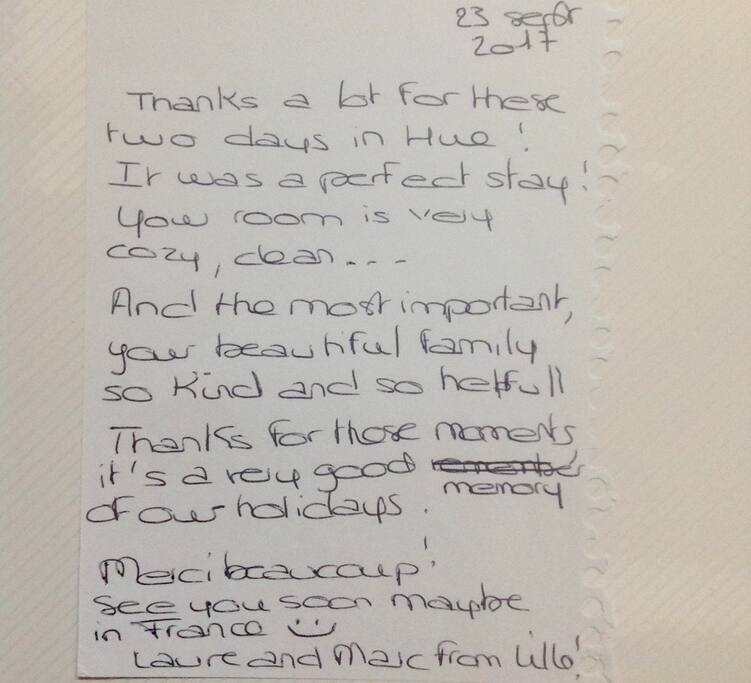 23 septbr
2017
Thanks a lot for these
two days in Hue !
It was a perfect stay !
Your room is very
cozy, clean...
And the most important,
your beautiful family
so kind and so helfull
Thanks for those moments
it's a very good remember
memory
of our holidays.
Merci beaucoup !
See you soon maybe
in France
Laure and Marc from Lille !